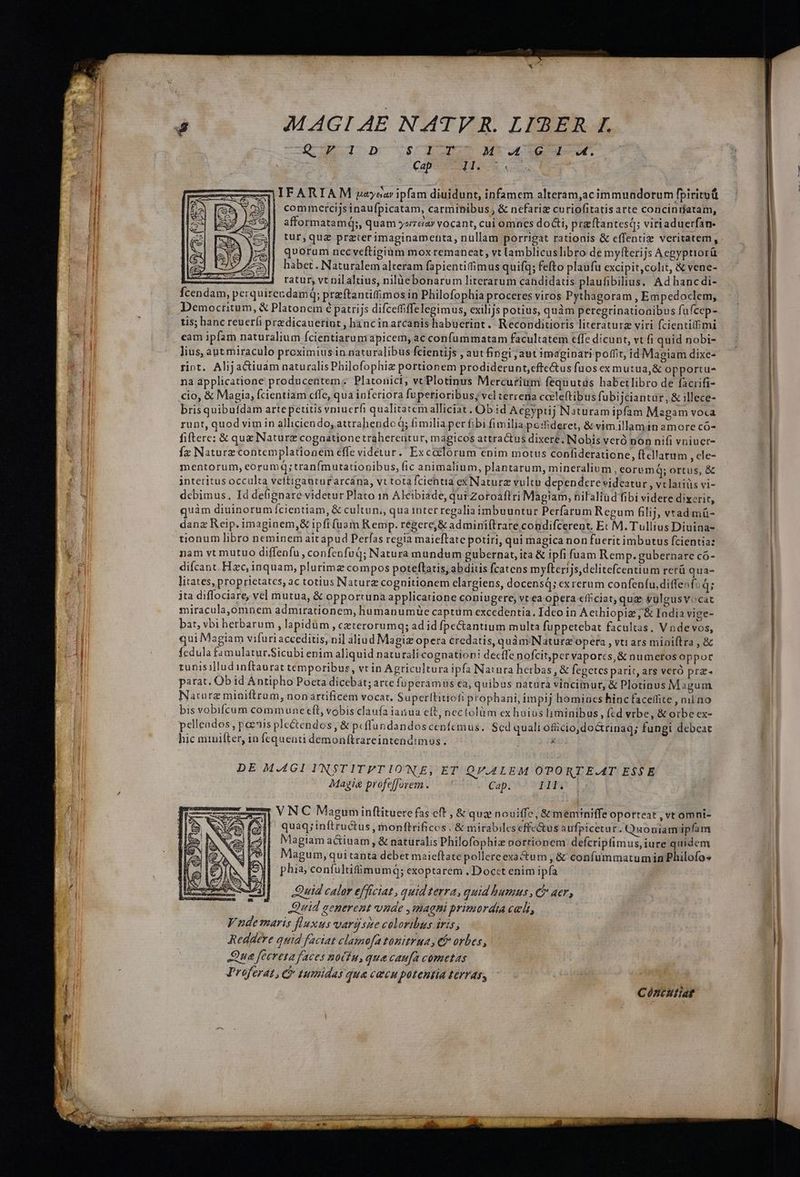 2 MAGIAE NATVR. LIBER I.
QVID SIT MAGIA.
Cap. II.
BIFARIAM μαγείαν ipſam diuidunt, infamem alteram, ac immundorum ſpirituũ
commercijs inauſpicatam, carminibus, & nefariæ curioſitatis arte concinnatam,
afformatamq́;, quam γοητείαν vocant, cui omnes docti, præſtantesq́; viri aduerſan-
tur, quæ præter imaginamenta, nullam porrigat rationis & eſſentiæ veritatem,
quorum nec veſtigium mox remaneat, vt Iamblicus libro de myſterijs Aegyptiorũ
habet. Naturalem alteram ſapientiſſimus quiſq; feſto plauſu excipit, colit, & vene-
ratur, vt nil altius, nilùe bonarum literarum candidatis plauſibilius. Ad hanc di-
ſcendam, perquirendamq́; præſtantiſſimos in Philoſophia proceres viros Pythagoram, Empedoclem,
Democritum, & Platonem è patrijs diſceſſiſſe legimus, exilijs potius, quàm peregrinationibus ſuſcep-
tis; hanc reuerſi prædicauerint, hanc in arcanis habuerint. Reconditioris literaturæ viri ſcientiſſimi
eam ipſam naturalium ſcientiarum apicem, ac conſummatam facultatem eſſe dicunt, vt ſi quid nobi-
lius, aut miraculo proximius in naturalibus ſcientijs, aut fingi, aut imaginari poſſit, id Magiam dixe-
rint. Alij actiuam naturalis Philoſophiæ portionem prodiderunt, effectus ſuos ex mutua, & opportu-
na applicatione producentem. Platonici, vt Plotinus Mercurium ſequutus habet libro de ſacrifi-
cio, & Magia, ſcientiam eſſe, qua inferiora ſuperioribus, vel terrena cœleſtibus ſubijciantur, & illece-
bris quibuſdam arte petitis vniuerſi qualitatem alliciat. Ob id Aegyptij Naturam ipſam Magam voca
runt, quod vim in alliciendo, attrahendoq́; ſimilia per ſibi ſimilia poſſideret, & vim illam in amore cō-
ſiſtere: & quæ Naturæ cognatione traherentur, magicos attractus dixere. Nobis verò non niſi vniuer-
ſæ Naturæ contemplationem eſſe videtur. Ex cœlorum enim motus conſideratione, ſtellatum, ele-
mentorum, eorumq́; tranſmutationibus, ſic animalium, plantarum, mineralium, eorumq́; ortus, &
interitus occulta veſtigantur arcana, vt tota ſcientia ex Naturæ vultu dependere videatur, vt latiùs vi-
debimus. Id deſignare videtur Plato in Alcibiade, qui Zoroaſtri Magiam, nil aliud ſibi videre dixerit,
quàm diuinorum ſcientiam, & cultum, qua inter regalia imbuuntur Perſarum Regum filij, vt ad mũ-
danæ Reip. imaginem, & ipſi ſuam Remp. regere, & adminiſtrare condiſcerent. Et M. Tullius Diuina-
tionum libro neminem ait apud Perſas regia maieſtate potiri, qui magica non fuerit imbutus ſcientia:
nam vt mutuo diſſenſu, conſenſuq́; Natura mundum gubernat, ita & ipſi ſuam Remp. gubernare cō-
diſcant. Hæc, inquam, plurimæ compos poteſtatis, abditis ſcatens myſterijs, deliteſcentium rerũ qua-
litates, proprietates, ac totius Naturæ cognitionem elargiens, docensq́; ex rerum conſenſu, diſſenſuq́;
ita diſſociare, vel mutua, & opportuna applicatione coniugere, vt ea opera efficiat, quæ vulgus vocat
miracula, omnem admirationem, humanumùe captum excedentia. Ideo in Aethiopia, & India vige-
bat, vbi herbarum, lapidum, cæterorumq́; ad id ſpectantium multa ſuppetebat facultas. Vnde vos,
qui Magiam viſuri acceditis, nil aliud Magiæ opera credatis, quàm Naturæ opera, vti ars miniſtra, &
ſedula famulatur. Sicubi enim aliquid naturali cognationi deeſſe noſcit, per vapores, & numeros oppor
tunis illud inſtaurat temporibus, vt in Agricultura ipſa Natura herbas, & ſegetes parit, ars verò præ-
parat. Ob id Antipho Poeta dicebat; arte ſuperamus ea, quibus natura vincimur, & Plotinus Magum
Naturæ miniſtrum, non artificem vocat. Superſtitioſi prophani, impij homines hinc faceſſite, nil no
bis vobiſcum commune eſt, vobis clauſa ianua eſt, nec ſolùm ex huius liminibus, ſed vrbe, & orbe ex-
pellendos, pœnis plectendos, & peſſundandos cenſemus. Sed quali officio, doctrinaq; fungi debeat
hic miniſter, in ſequenti demonſtrare intendimus.
DE MAGI INSTITVTIONE, ET QVALEM OPORTEAT ESSE
Magiæ profeſſorem. Cap. III.
NVNC Magum inſtituere fas eſt, & quæ nouiſſe, & meminiſſe oporteat, vt omni-
quaq; inſtructus, monſtrificos, & mirabiles effectus auſpicetur. Quoniam ipſam
Magiam actiuam, & naturalis Philoſophiæ portionem deſcripſimus, iure quidem
Magum, qui tanta debet maieſtate pollere exactum, & conſummatum in Philoſo-
phia, conſultiſſimumq́; exoptarem. Docet enim ipſa
Quid calor efficiat, quid terra, quid humus, & aer,
Quid generent vnde, magni primordia cœli,
Vnde maris fluxus varijsue coloribus iris,
Reddere quid faciat clamoſa tonitrua, & orbes,
Quæ ſecreta faces noctu, quæ cauſa cometas
Proferat, & tumidas quæ cæcu potentia terras,
Concutiat